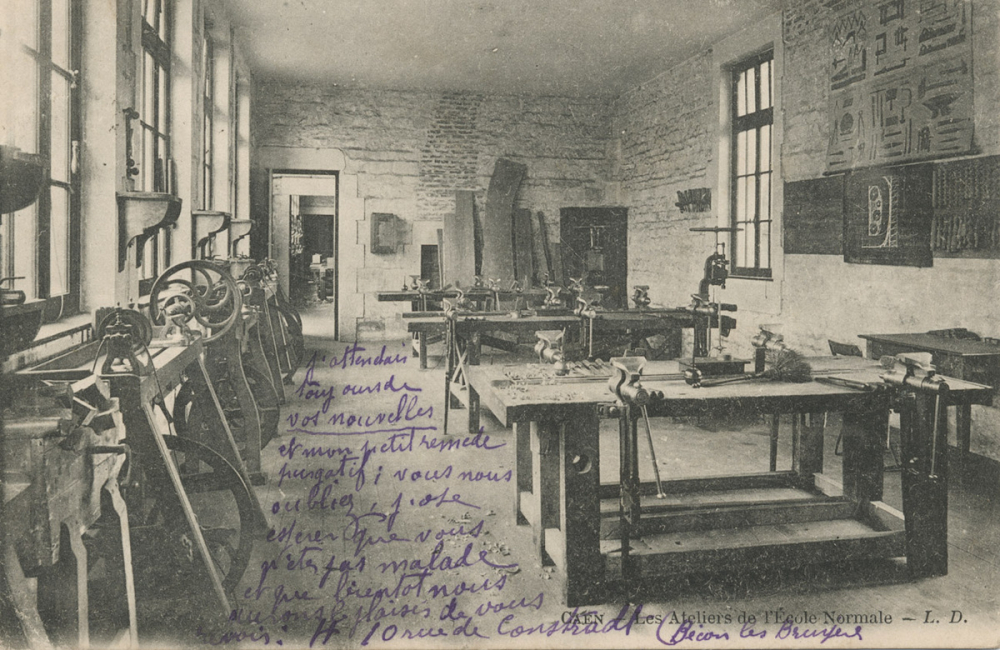 j'attendais
toujours de
vos nouvelles
et mon petit remede
purgatif ; vous nous
oubliez, j'ose
esperer que vous
n'etes pas malade
et que bientot nous
aurons plaisir de vous
revoir. 10 rue de (Becon les Bruyere
CAEN — Les Ateliers de l'École Normale — L. D.